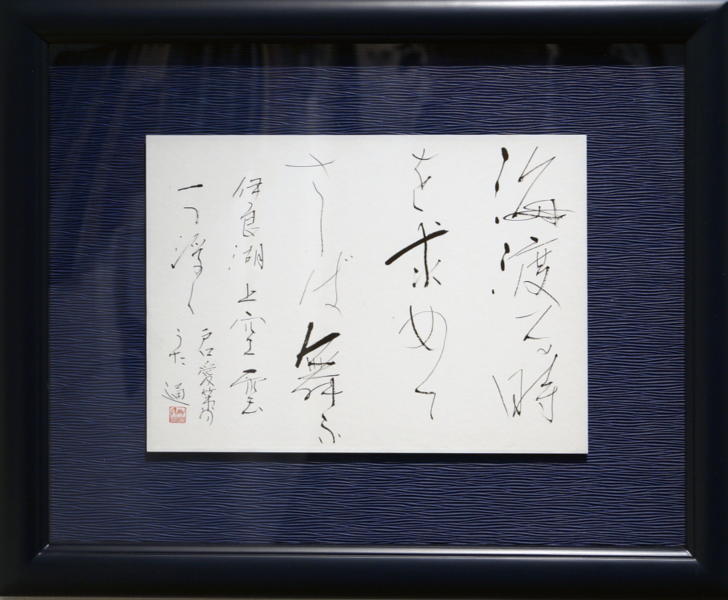 海渡る時
を求めて
さしば舞ふ
伊良湖上空雲
一つ浮く
うた 通